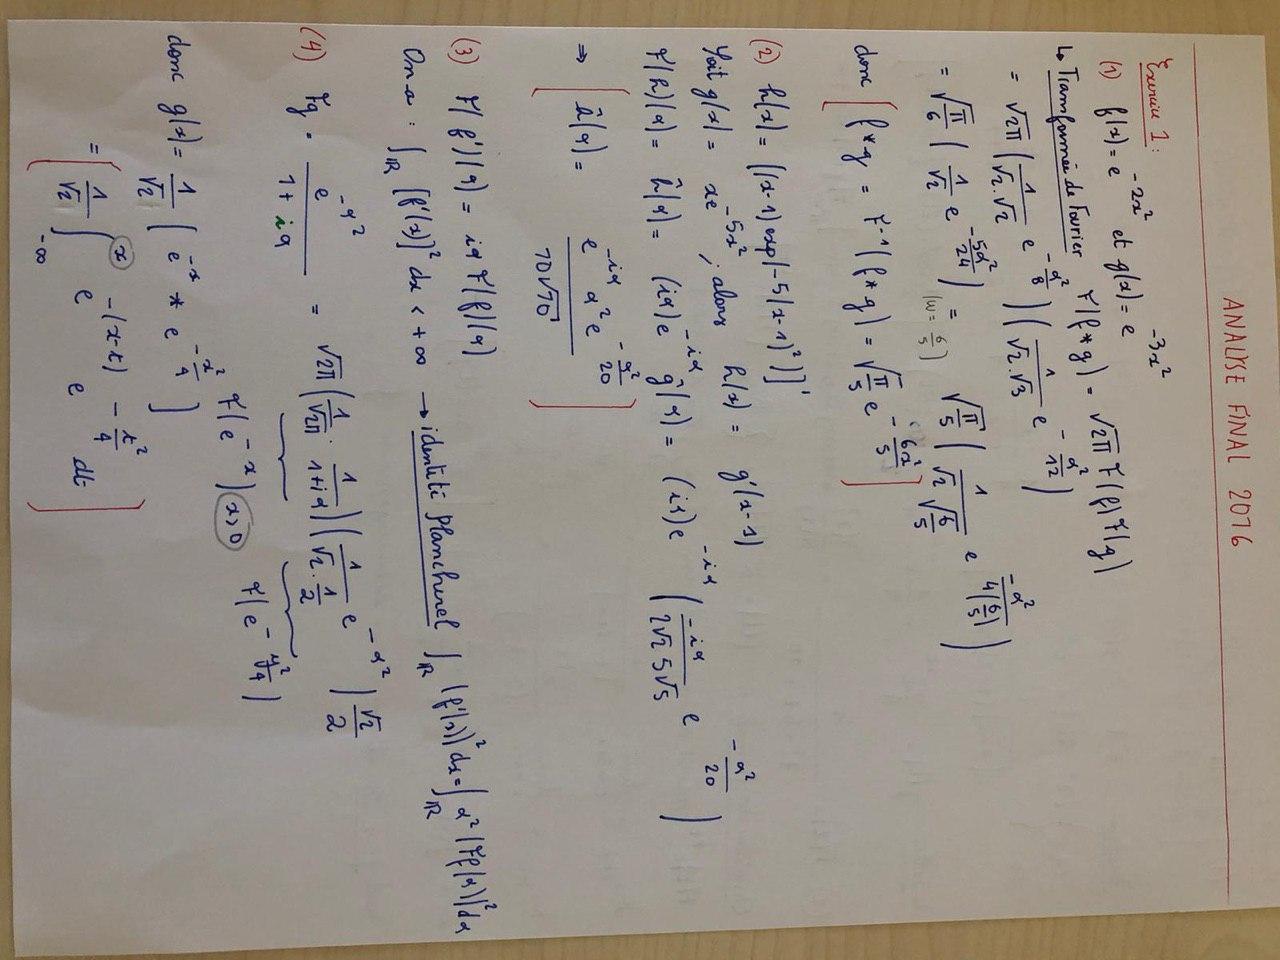 ANALYSE FINAL 2016
Exercice 1:
(1) f(x) = e^{-2x²} et g(x) = e^{-3x²}
↳ Transformée de Fourier F(f*g) = √2π F(f) F(g)
= √2π (1/(√2.√2) e^{-α²/8}) (1/(√2.√3) e^{-α²/12})
= √(π/6) (1/√2 e^{-5α²/24}) = (w = 6/5) √(π/5) (1/(√2 √(6/5)) e^{-α²/(4(6/5))})
donc [f*g = F⁻¹(f*g) = √(π/5) e^{-6x²/5}]
(2) h(x) = [(x-1) exp(-5(x-1)²)]'
Soit g(x) = xe^{-5x²}, alors h(x) = g'(x-1)
F(h)(α) = ĥ(α) = (iα)e^{-iα} ĝ(α) = (iα)e^{-iα} (-iα/(2√2 5√5) e^{-α²/20})
⇒ [ĥ(α) = e^{-iα} α² e^{-α²/20} / 10√10]
(3) F(f')(α) = iα F(f)(α)
On a : ∫_ℝ [f'(x)]² dx < +∞ → identité Plancherel ∫_ℝ (f'(x))² dx = ∫_ℝ α² |Ff(α)|² dα
(4) Fg = e^{-α²}/(1 + iα) = √2π (1/√2π · 1/(1+iα)) (1/(√2.1/2) e^{-α²}) √2/2
F(e^{-x}) x>0 F(e^{-y²/4})
donc g(x) = 1/√2 [e^{-x} * e^{-x²/4}]
= [1/√2 ∫_{-∞}^{x} e^{-(x-t)} e^{-t²/4} dt]